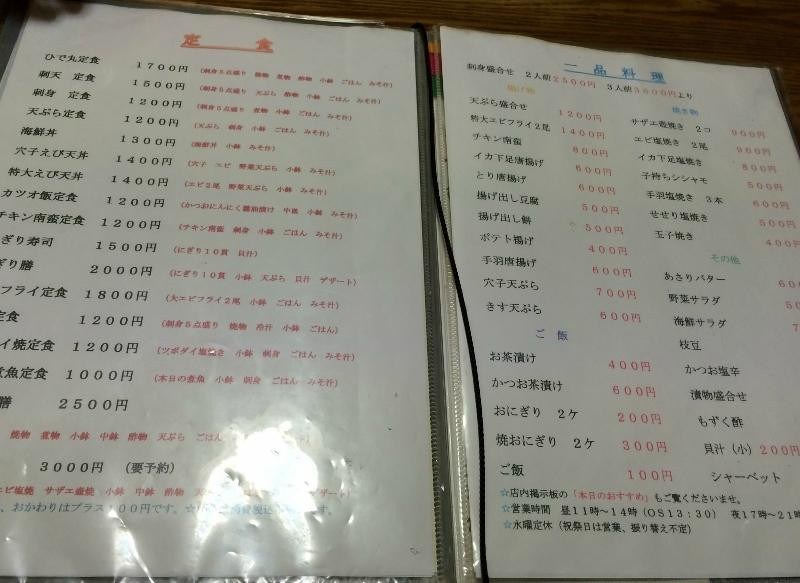 定　食
ひで丸定食 1700円 (刺身5点盛り 焼物 煮物 酢物 小鉢 ごはん みそ汁)
刺天 定食 1500円 (刺身5点盛り 天ぷら 酢物 小鉢 ごはん みそ汁)
刺身 定食 1200円 (刺身5点盛り 煮物 小鉢 ごはん みそ汁)
天ぷら定食 1200円 (天ぷら 刺身 小鉢 ごはん みそ汁)
海鮮丼 1300円 (海鮮丼 小鉢 みそ汁)
穴子えび天丼 1400円 (穴子 エビ 野菜天ぷら 小鉢 みそ汁)
特大えび天丼 1400円 (エビ2尾 野菜天ぷら 小鉢 みそ汁)
カツオ飯定食 1200円 (かつおにんにく醤油漬け 中皿 小鉢 みそ汁)
チキン南蛮定食 1200円 (チキン南蛮 刺身 小鉢 ごはん みそ汁)
ぎり寿司 1500円 (にぎり10貫 貝汁)
ぎり膳 2000円 (にぎり10貫 小鉢 天ぷら 貝汁 デザート)
フライ定食 1800円 (大エビフライ2尾 小鉢 ごはん みそ汁)
定食 1200円 (刺身5点盛り 焼物 冷汁 小鉢 ごはん)
イ焼定食 1200円 (ツボダイ塩焼き 小鉢 刺身 ごはん みそ汁)
煮魚定食 1000円 (本日の煮魚 小鉢 刺身 ごはん みそ汁)
膳 2500円
焼物 煮物 小鉢 中鉢 酢物 天ぷら ごはん
3000円 (要予約)
エビ塩焼 サザエ壺焼 小鉢 中鉢 酢物
、おかわりはプラス100円です。
一品料理
刺身盛合せ 2人前2500円 3人前3600円より
揚げ物
天ぷら盛合せ 1200円
特大エビフライ2尾 1400円
チキン南蛮 800円
イカ下足唐揚げ 600円
とり唐揚げ 600円
揚げ出し豆腐 500円
揚げ出し餅 500円
ポテト揚げ 400円
手羽唐揚げ 600円
穴子天ぷら 700円
きす天ぷら 600円
ご飯
お茶漬け 400円
かつお茶漬け 600円
おにぎり 2ケ 200円
焼おにぎり 2ケ 300円
ご飯 100円
焼き物
サザエ壺焼き 2コ 900円
エビ塩焼き 2尾 900円
イカ下足塩焼き 800円
子持ちシシャモ 500円
手羽塩焼き 3本 600円
せせり塩焼き 500円
玉子焼き 400円
その他
あさりバター
野菜サラダ
海鮮サラダ
枝豆
かつお塩辛
漬物盛合せ
もずく酢
貝汁(小) 200円
シャーベット
☆店内掲示板の「本日のおすすめ」もご覧くださいませ。
☆営業時間 昼11時~14時(OS13:30) 夜17時~21時
☆水曜定休(祝祭日は営業、振り替え不定)